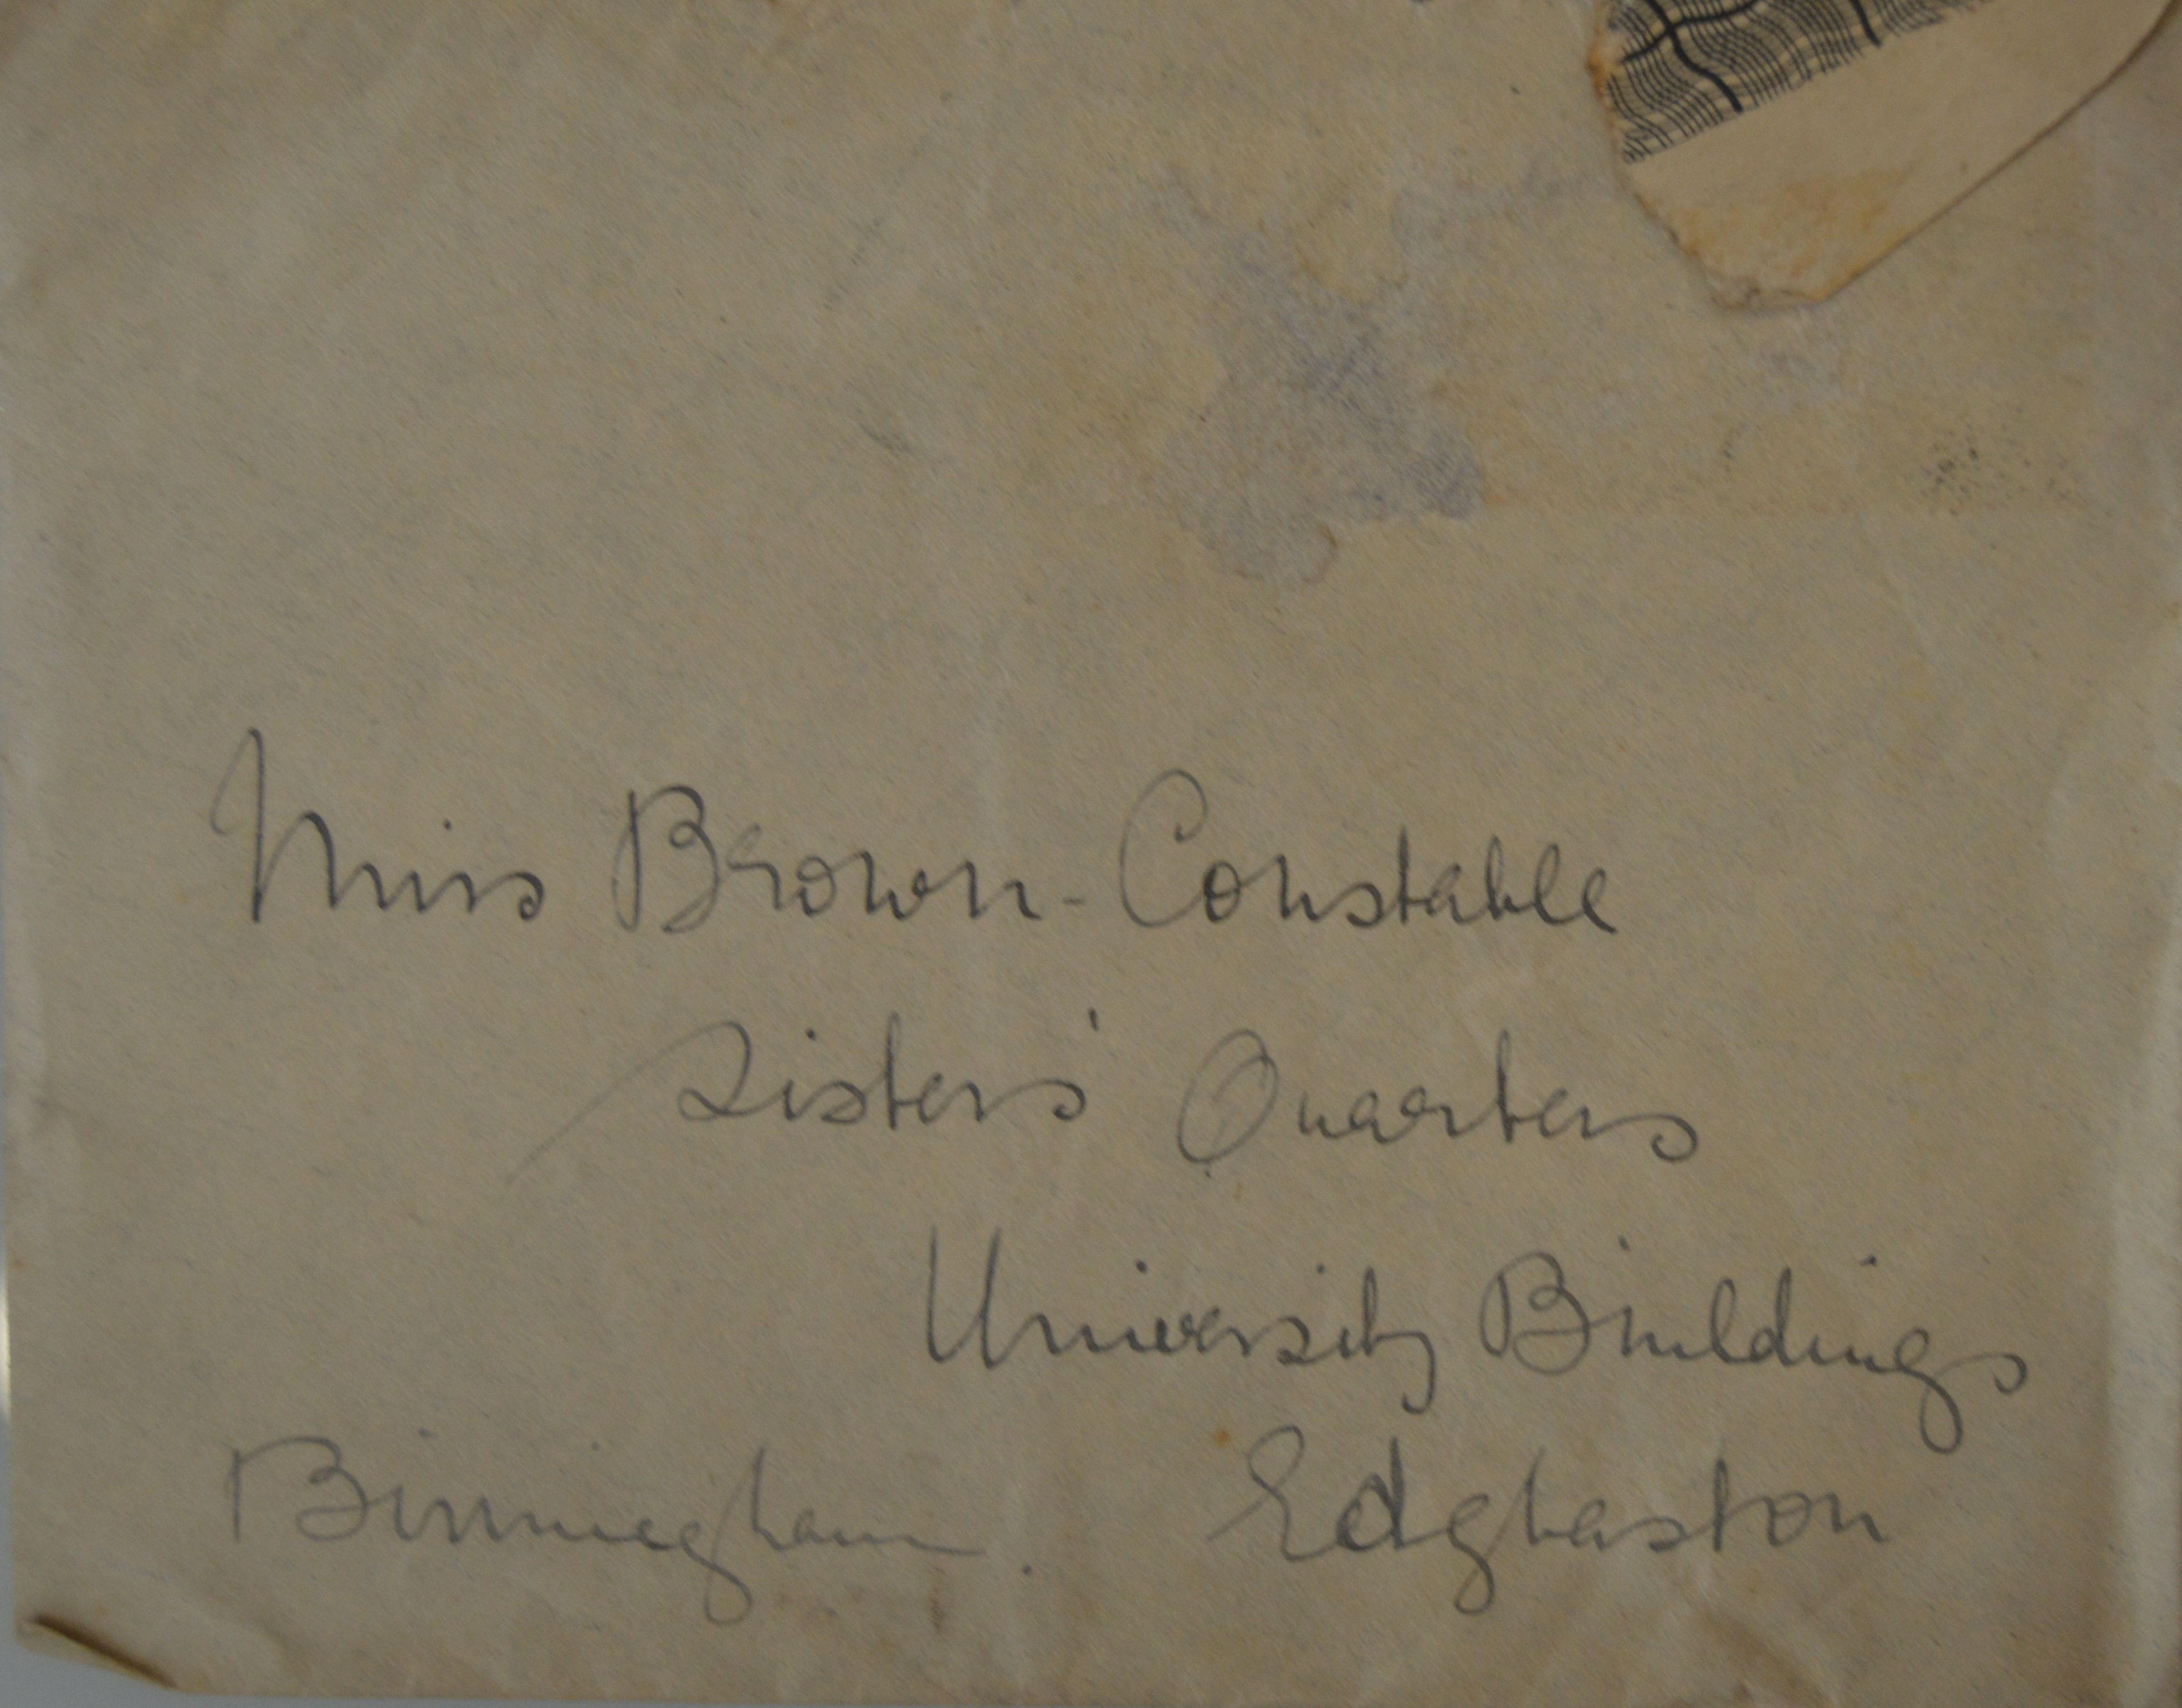 Miss Brown-Constable
Sisters' Quarters
University Buildings
Edgbaston
Birmingham.